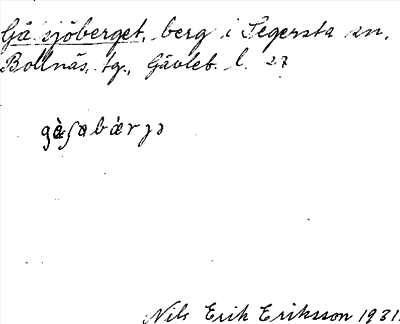 Gåsjöberget, berg i Segersta sn,
Bollnäs tg., Gävleb. l. 27
gàʃabǽrjə
Nils Erik Eriksson 1931.